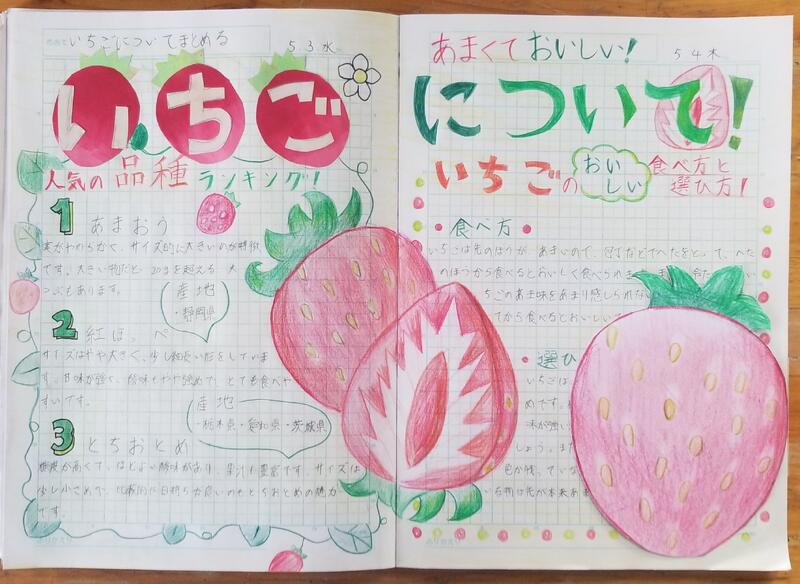 いちごについてまとめる
5 3 水
いちご
人気の品種ランキング!
1 あまおう
実がやわらかく、サイズ的に大きいのが特徴
です。大きい物だと、30gを超える 大
つぶもあります。
産地
・静岡県
2 紅ほっぺ
サイズはやや大きく、少し細長い形をしていま
す。甘味が強く、酸味もやや強めで、とても食べや
すいです。
産地
・栃木県・愛知県・茨城県
3 とちおとめ
糖度が高くて、ほどよい酸味があり、果汁も豊富です。サイズは
少し小さめで、比較的に日持ちが良いのもとちおとめの魅力
です。
あまくておいしい!
5 4 木
について!
いちごのおいしい食べ方と選び方!
・食べ方・
いちごは先のほうが、あまいので、包丁などでへたをとって、へた
のほうから食べるとおいしく食べられま
ちごのあま味をあまり感じられない
てから食べるとおいしい
・選び
いちごは
めです。
味が強い
しょう。また
色が残っていな
い物は先が本来あま